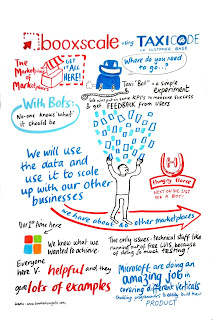 booxscale using TAXICODE
UK CUSTOMER BASE
The
Marketplace
of
Marketplaces
GET IT
ALL
HERE!
Where do you
need to go..?
Taxi "Bot" - a simple
experiment
We will put in some KPIs to measure success
& get FEEDBACK from users
With Bots:
No-one knows what
it should be
We will use
the data and
use it to scale
up with our other
businesses
Hungry House
NEXT ON THE LIST
FOR A BOT!
we have about 20 other marketplaces
Our 1st time here
We knew what we
wanted to achieve.
Everyone
here is helpful and they
got lots of examples
The only issues - technical stuff like
running out of free LUIS, because
of doing so much testing!
Microsoft are doing an
amazing job in
covering different verticals
Enabling programmers to easily build their
PRODUCT